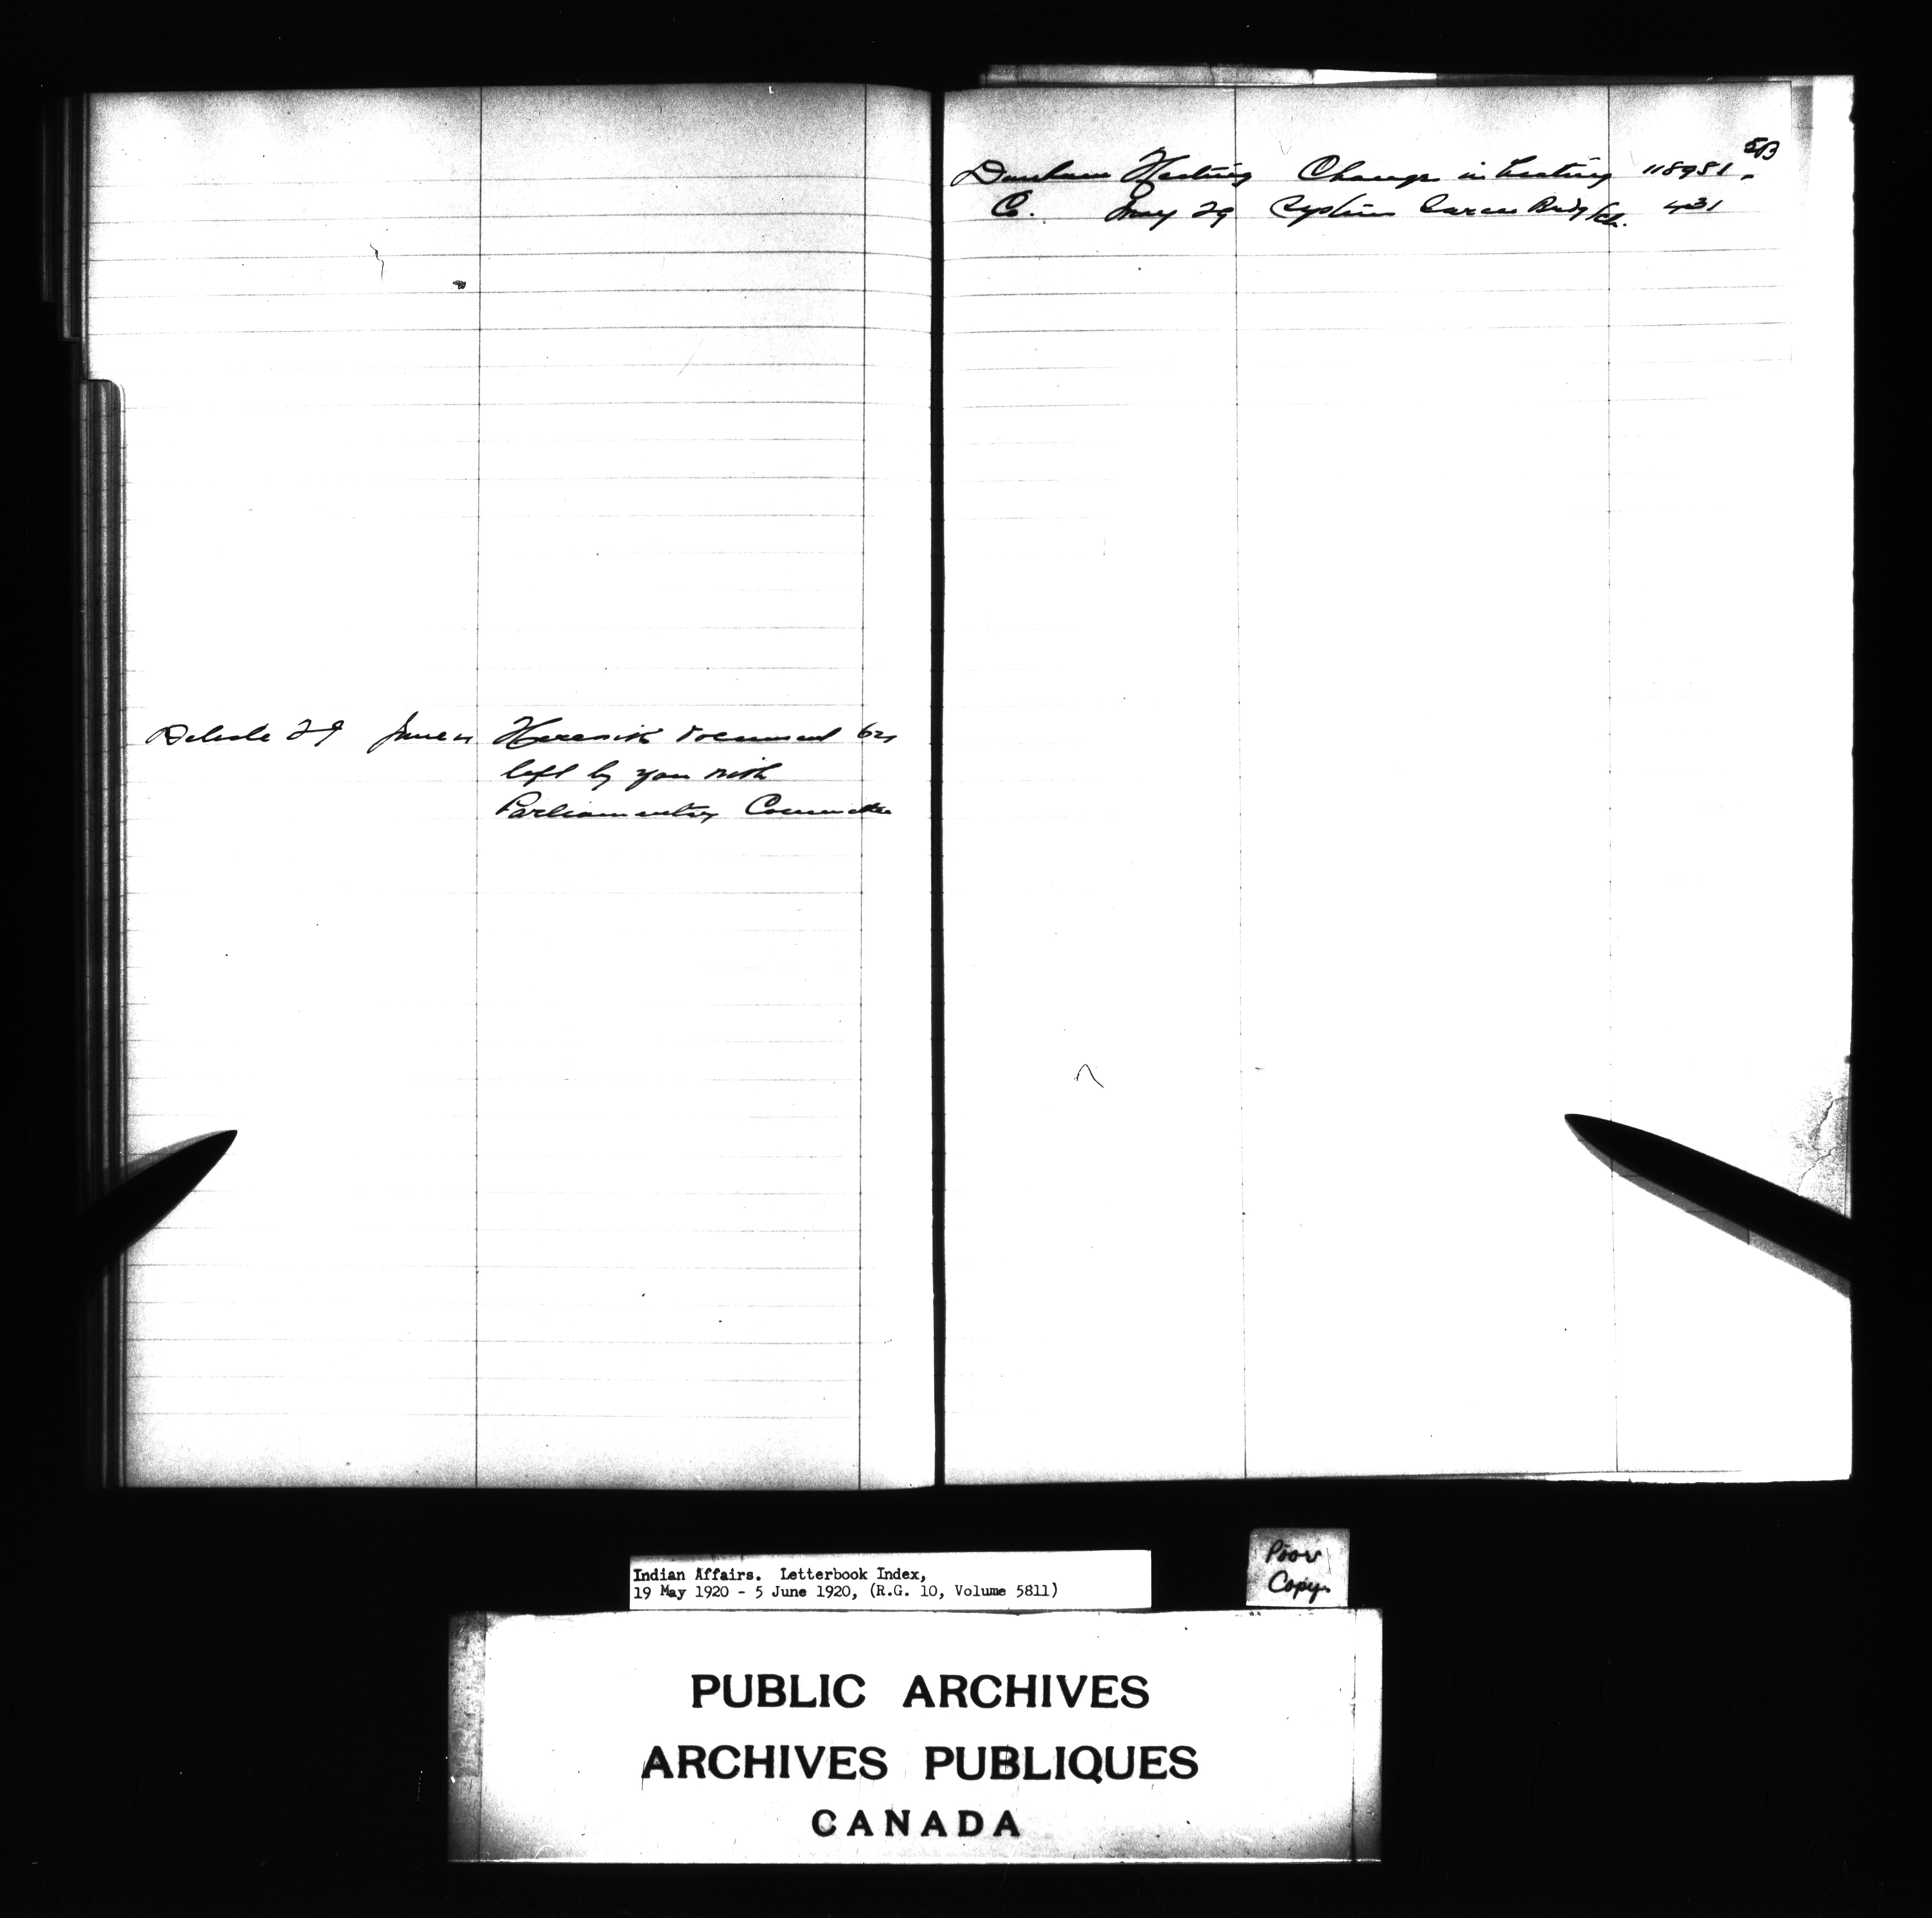 Delisle June 4 Herewith document
left by you with
Parliamentary Committee
Dunham Heating Change in heating 118981-5B
Co. May 29 System Sch. 431
Indian Affairs. Letterbook Index,
19 May 1920 - 5 June 1920, (R.G. 10, Volume 5811)
Poor
Copy.
PUBLIC ARCHIVES
ARCHIVES PUBLIQUES
CANADA